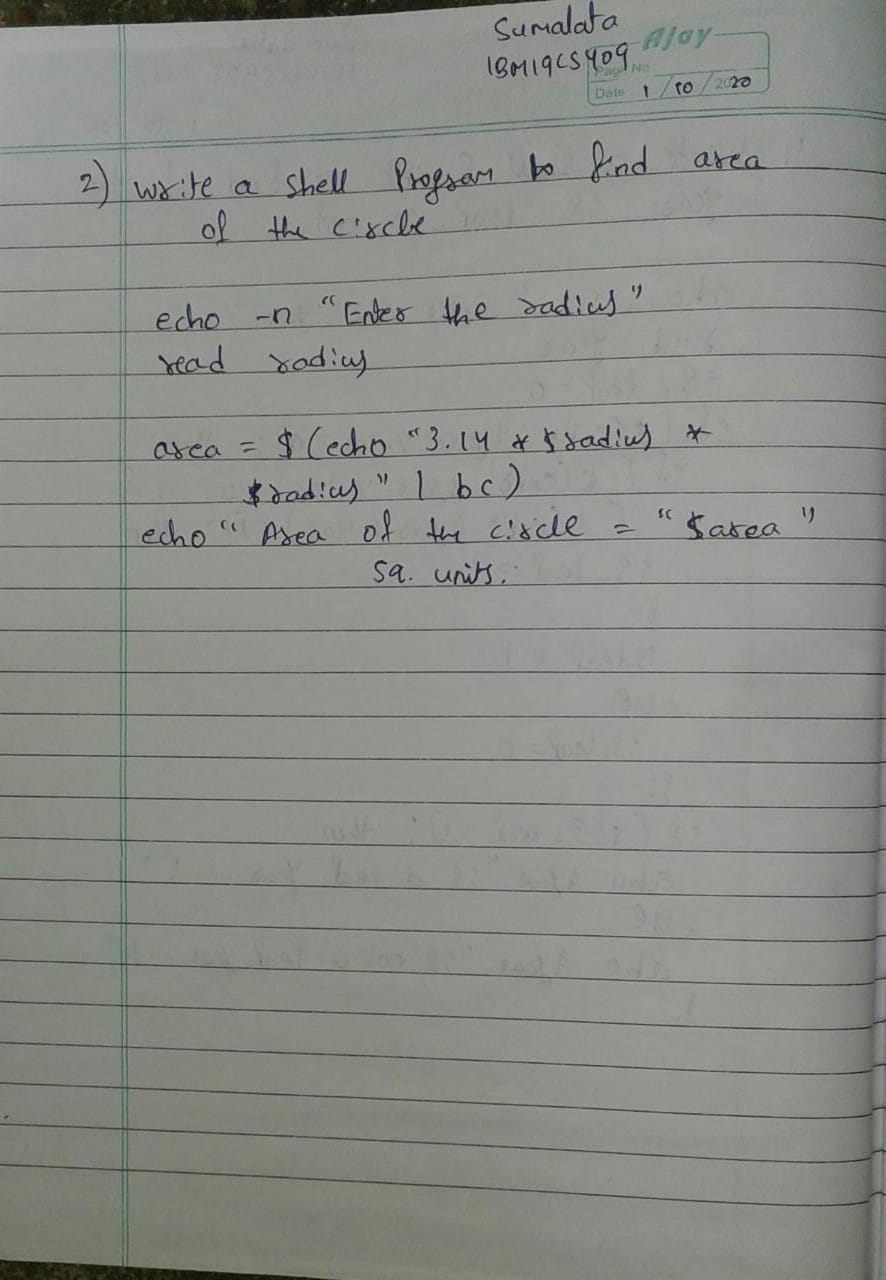 Sumalata
1BM19CS409
Ajay
Page No
Date 1 / 10 / 2020
2) Write a shell Program to find area
of the circle
echo -n "Enter the radius"
read radius
area = $ (echo "3.14 * $ radius *
$radius" | bc)
echo " Area of the circle = " $area "
sq. units.